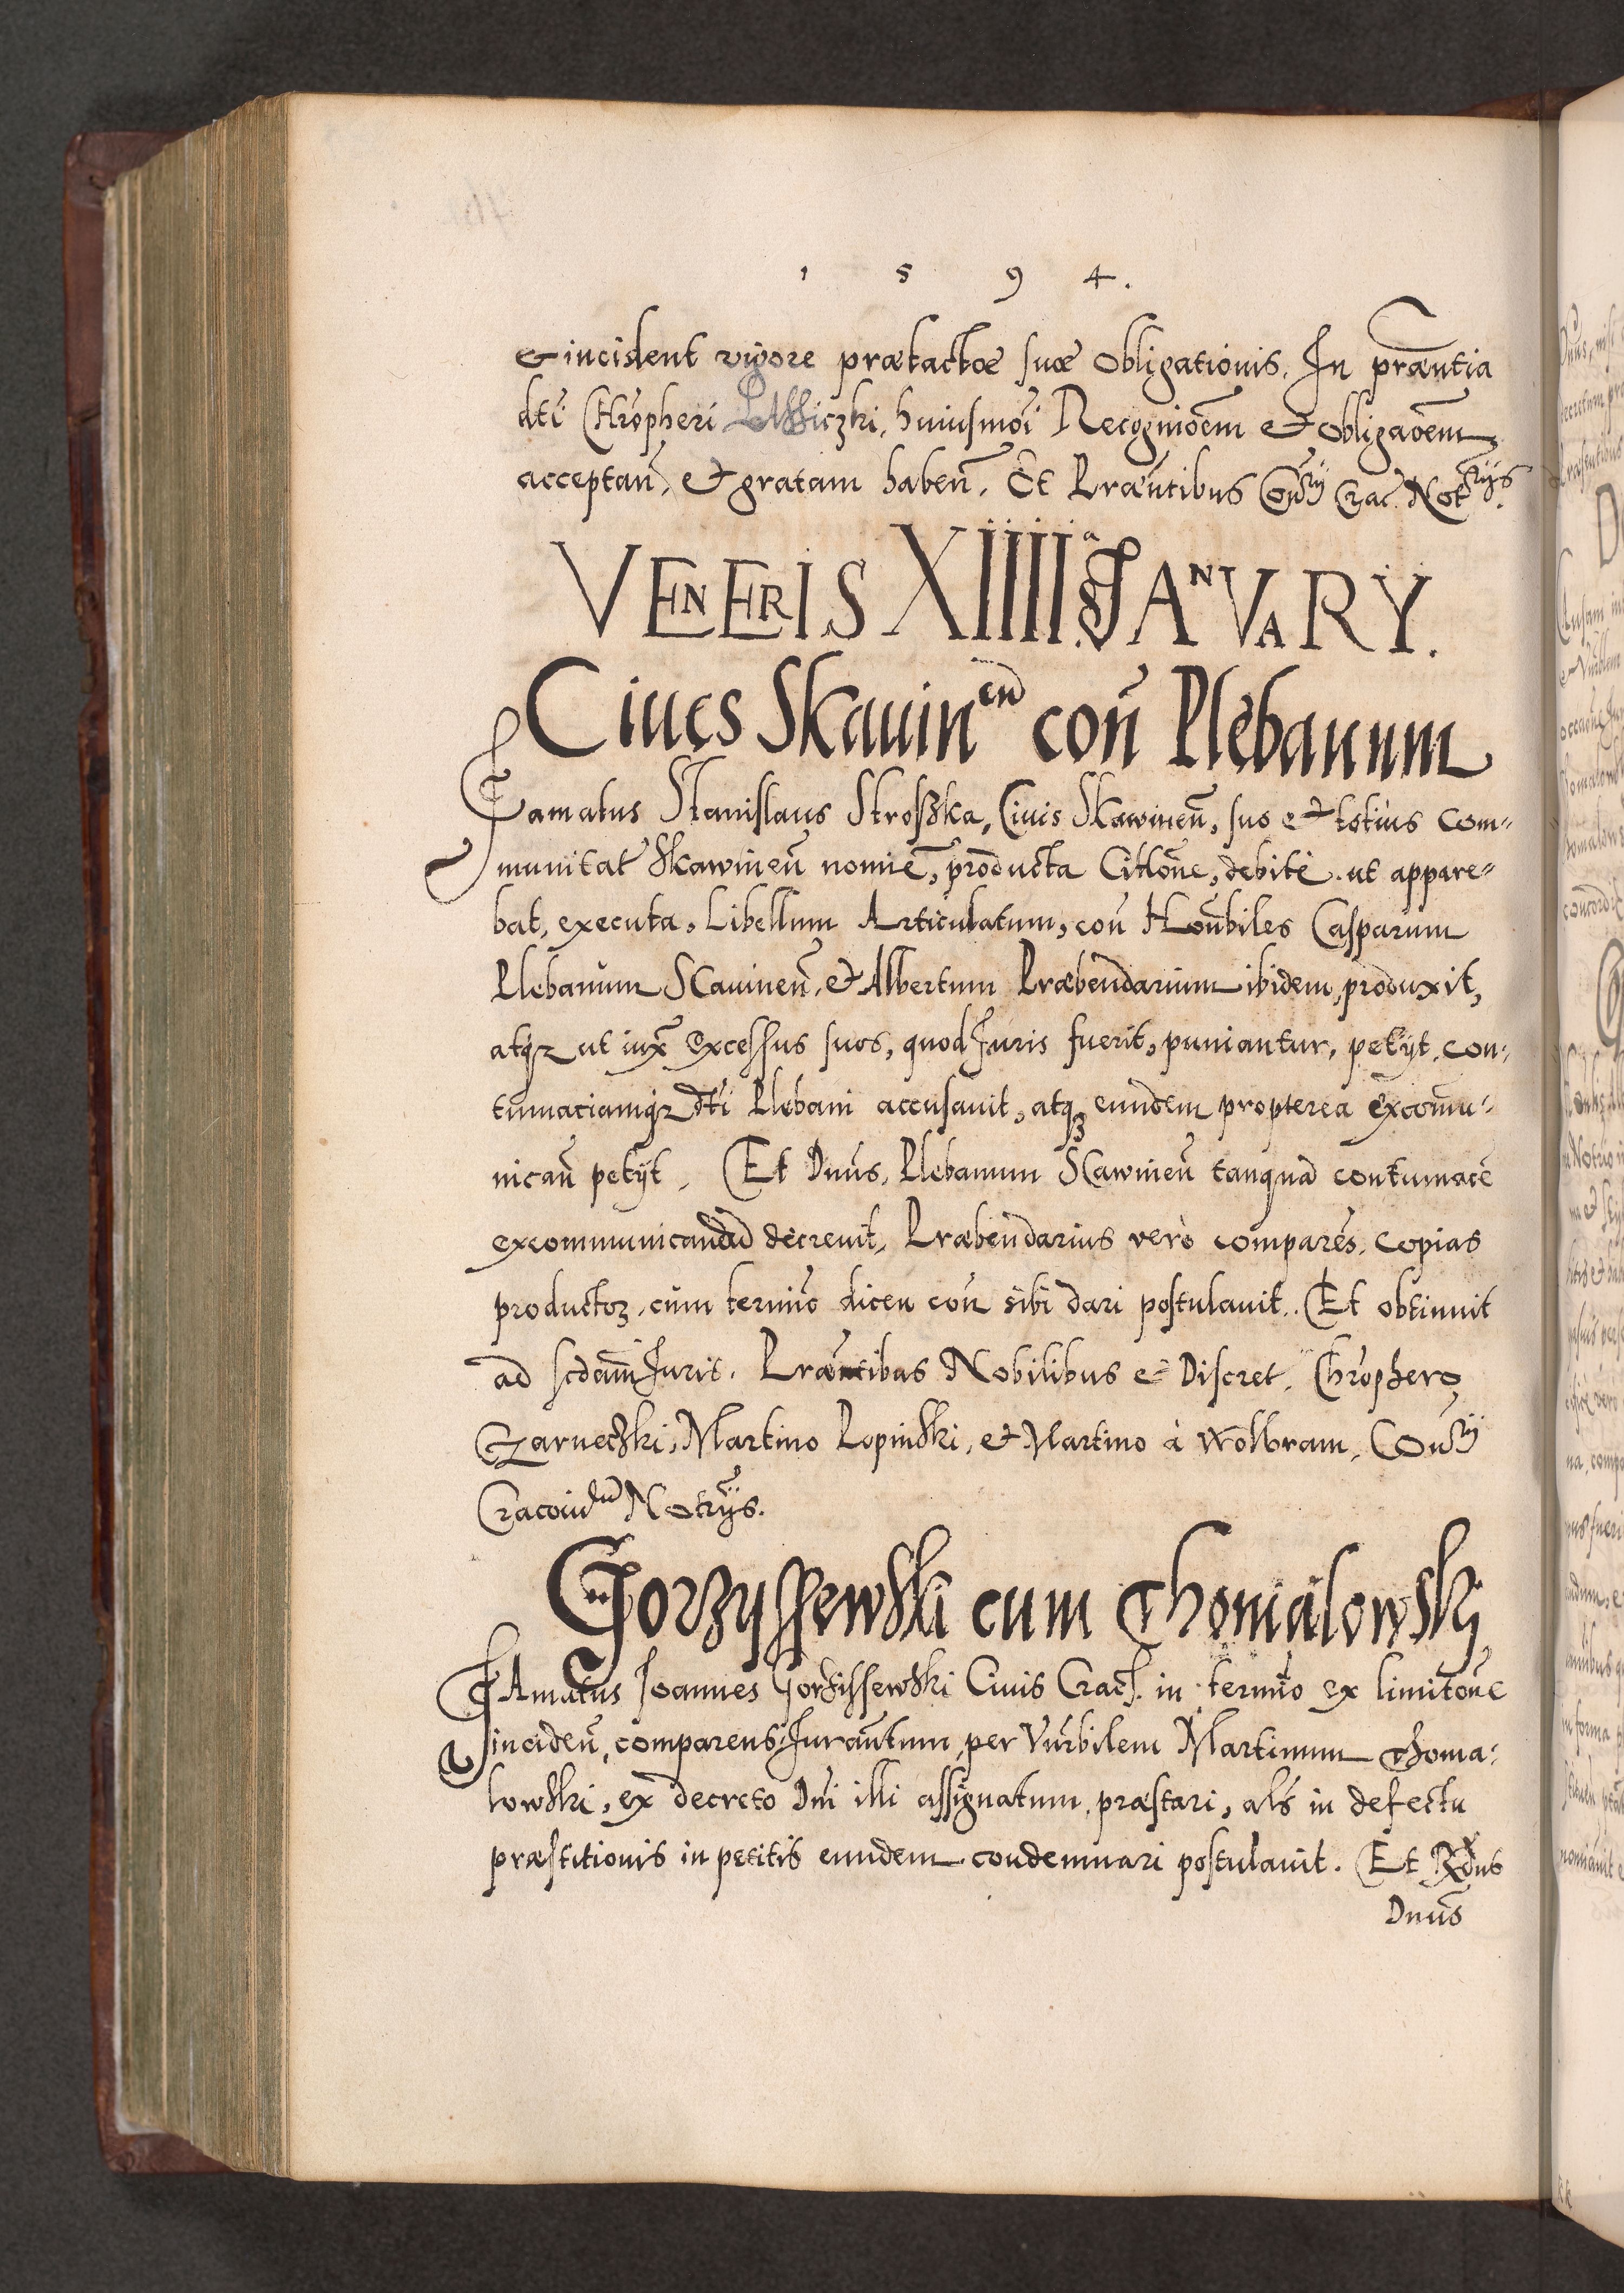 1 5 9 4.
& incident vigore prætactæ suæ Obligationis. In præntia
dti Chropheri huiusmoi Recognioem et Obligaoem
acceptan, et gratam haben. Et Præntibus Conrij Crac. Notrijs.
VENERIS XIIIIa JANVARY.
Ciues Skauinen con Plebanum
Famatus Stanislaus Stroszka, Ciuis Skawinen, suo et totius Com-
munitat Skawinen nomie, producta Cittone, debite ut appare-
bat, executa, Libellum Articulatum, con Honbiles Casparum
Plebanum Scauinen, et Albertum Præbendarium ibidem, produxit,
atqz ut iux excessus suos, quod Juris fuerit, puniantur, petijt, con-
tumaciamqz dti Plebani accusauit, atqz eundem propterea excomu-
nican petijt. Et Dnus, Plebanum Scawinen tanqua contumace
excommunicandu decreuit, Præbendarius vero compares, copias
productoz, cum termino dicen con sibi dari postulauit. Et obtinuit
ad scdam Juris. Præntibus Nobilibus et Discret. Chrophero
Czarneczki, Martino Lopinski, et Martino à Wolbram, Conrij
Cracouien Notrijs.
Gorzyssewski cum Thomalowski
Famatus Joannes Gorzissewski Ciuis Crac. in termino ex limitone
inciden, comparens, Juramtum, per Vnrbilem Martinum Thoma-
lowski, ex decreto Dni illi assignatum, præstari, als in defectu
præstitionis in petitis eundem condemnari postulauit. Et Rdus
Dnus